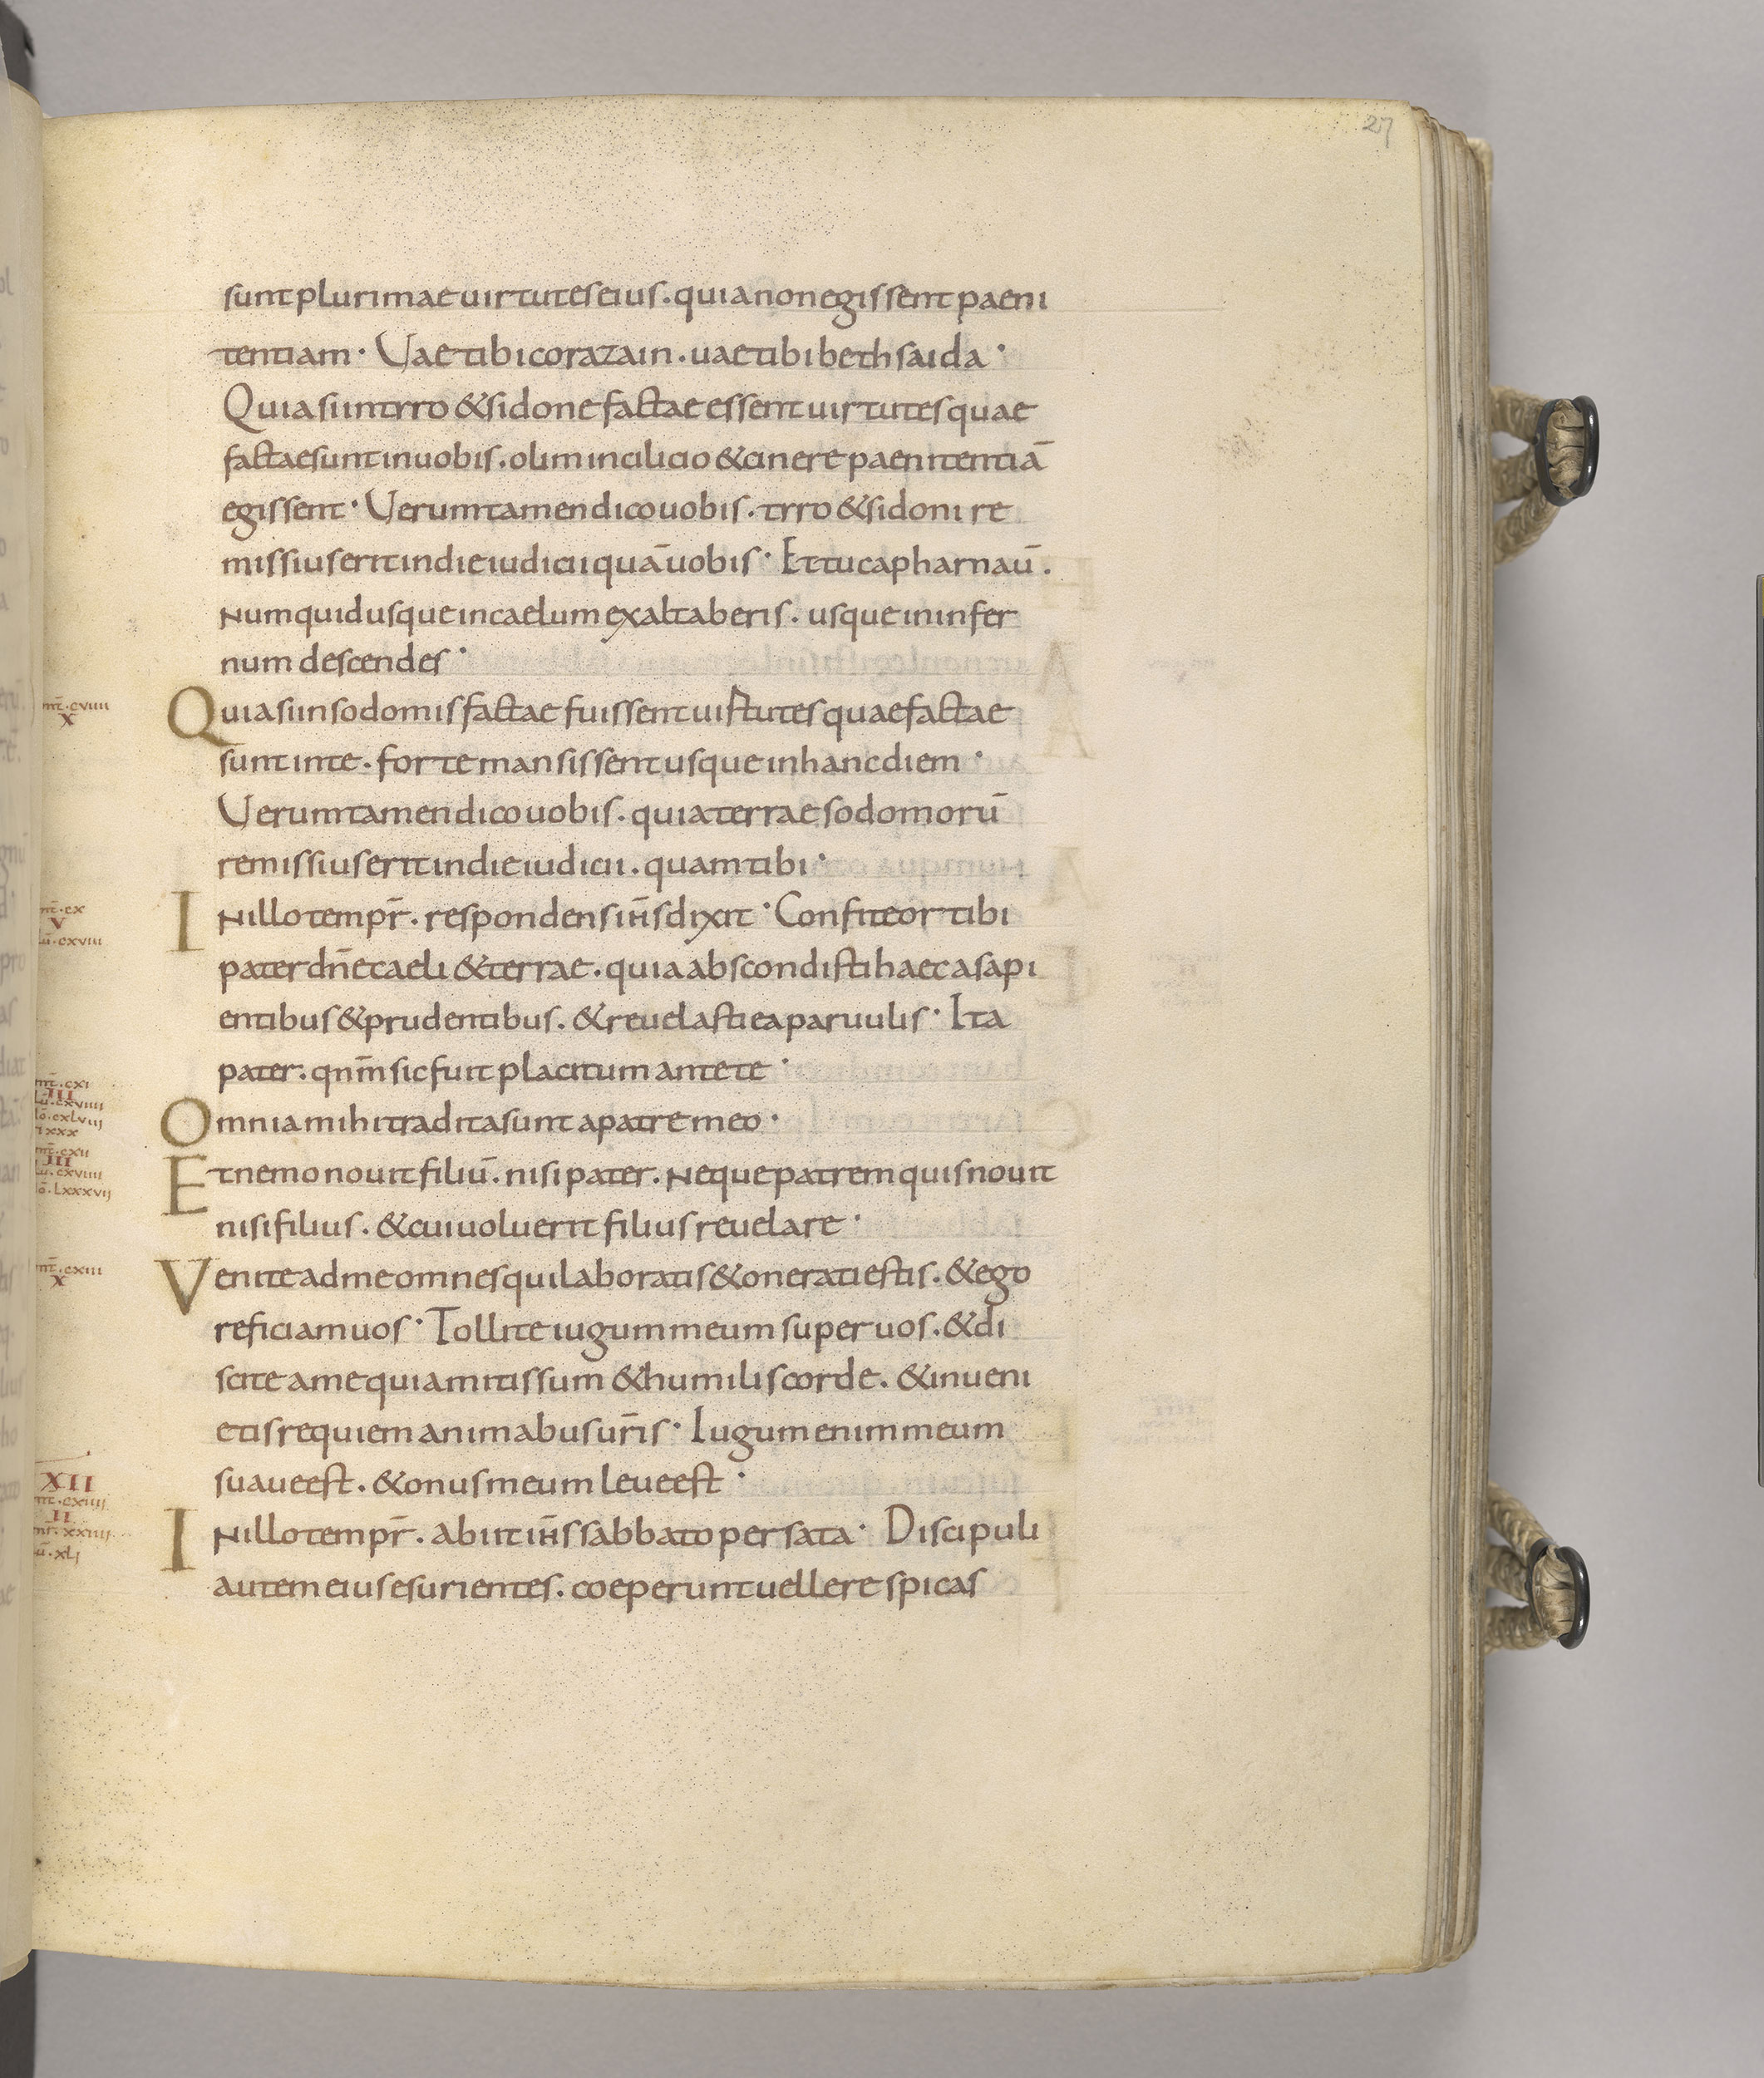 27
sunt plurimae uirtutes eius. quia non egissent paeni
tentiam· Uae tibi corazain. uae tibi bethsaida·
Quia si in tyro & sidone factae essent uirtutes quae
factae sunt in uobis. olim in cilicio & cinere paenitentiā
egissent· Uerumtamen dico uobis. tyro & sidoni re
missius erit in die iudicii quā uobis· Et tu capharnaū.
Numquid usque in caelum exaltaberis. usque in infer
num descendes·
mt̄. cviiii
x
Quia si in sodomis factae fuissent uirtutes quae factae
sunt in te. forte mansissent usque in hanc diem·
Uerumtamen dico uobis. quia terrae sodomorū
remissius erit in die iudicii. quam tibi·
mt̄. cx
V
lū. cxviii
IN illo tempr̄. respondens ih̄s dixit· Confiteor tibi
pater dn̄e caeli & terrae. quia abscondisti haec a sapi
entibus & prudentibus. & reuelasti ea paruulis· Ita
pater. qnm̄ sic fuit placitum ante te·
mt̄. cxi
III
lū. cxviiii
iō. cxlviii
Omnia mihi tradita sunt a patre meo·
mt̄. cxii
III
lū. cxviiii
iō. Lxxxvii
Et nemo nouit filiū. nisi pater. Neque patrem quis nouit
nisi filius. & cui uoluerit filius reuelare·
mt̄. cxiii
x
Venite ad me omnes qui laboratis & onerati estis. & ego
reficiam uos· Tollite iugum meum super uos. & di
scite a me quia mitis sum & humilis corde. & inueni
etis requiem animabus ur̄is· Iugum enim meum
suaue est. & onus meum leue est·
XII
mt̄. cxiiii
II
mr̄. xxiiii
lū. xli
IN illo tempr̄. abiit ih̄s sabbato per sata· Discipuli
autem eius esurientes. coeperunt uellere spicas